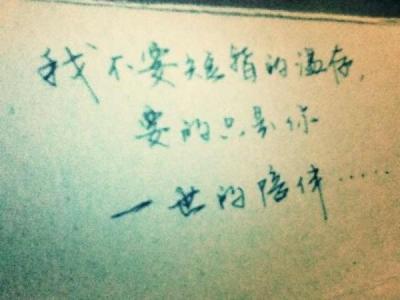 我不要短暂的温存，
要的只是你
一世的陪伴……